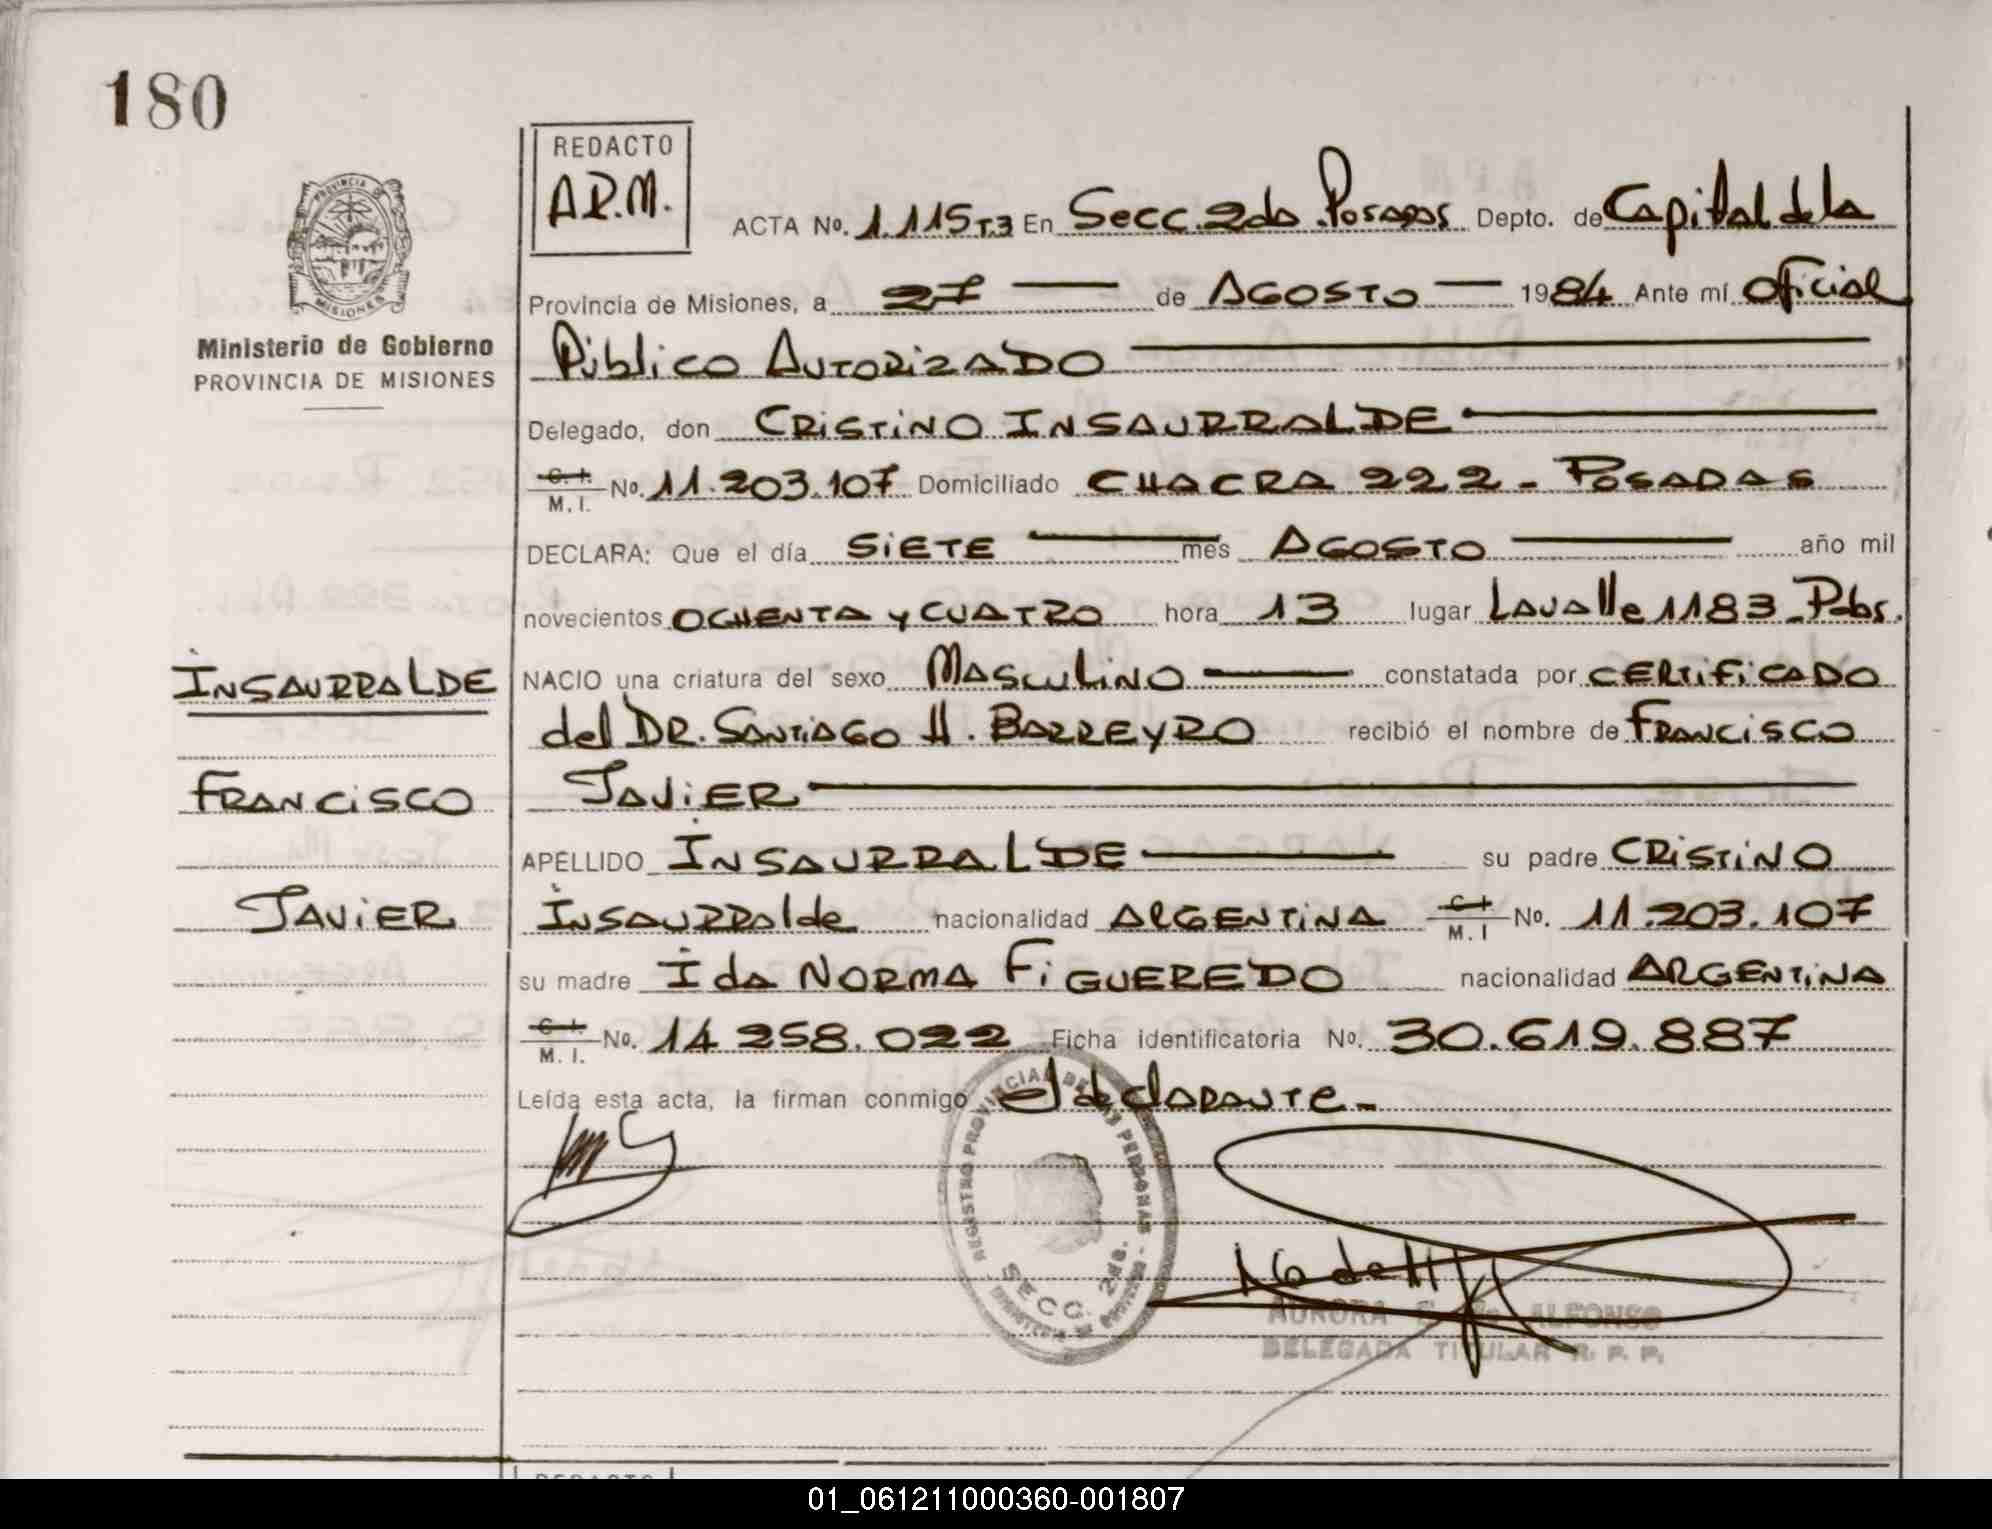 180
REDACTO
A.R.M.
PROVINCIA DE
MISIONES
Ministerio de Gobierno
PROVINCIA DE MISIONES
ACTA No. 1.115 T.3 En Secc. 2da. Posadas Depto. de Capital de la
Provincia de Misiones, a 27 — de AGOSTO — 1984 Ante mí Oficial
Público AUTORIZADO
Delegado, don CRISTINO INSAURRALDE
C. I. / M. I. No. 11.203.107 Domiciliado CHACRA 222 - POSADAS
DECLARA: Que el día SIETE — mes AGOSTO — año mil
novecientos OCHENTA y CUATRO hora 13 lugar Lavalle 1183 - Pdas.
INSAURRALDE
NACIO una criatura del sexo MASCULINO — constatada por CERTIFICADO
del DR. SANTIAGO H. BARREYRO recibió el nombre de FRANCISCO
FRANCISCO
JAVIER
APELLIDO INSAURRALDE — su padre CRISTINO
JAVIER
INSAURRALde nacionalidad ARGENTINA C. I. / M. I No. 11.203.107
su madre Ida NORMA FIGUEREDO nacionalidad ARGENTINA
C. I. / M. I. No. 14 258.022 Ficha identificatoria No. 30.619.887
Leída esta acta, la firman conmigo el declarante.-
REGISTRO PROVINCIAL DE LAS PERSONAS
SECC. 2da.
AURORA ALFONSO
DELEGADA TITULAR R. P. P.
REDACTO
01_061211000360-001807